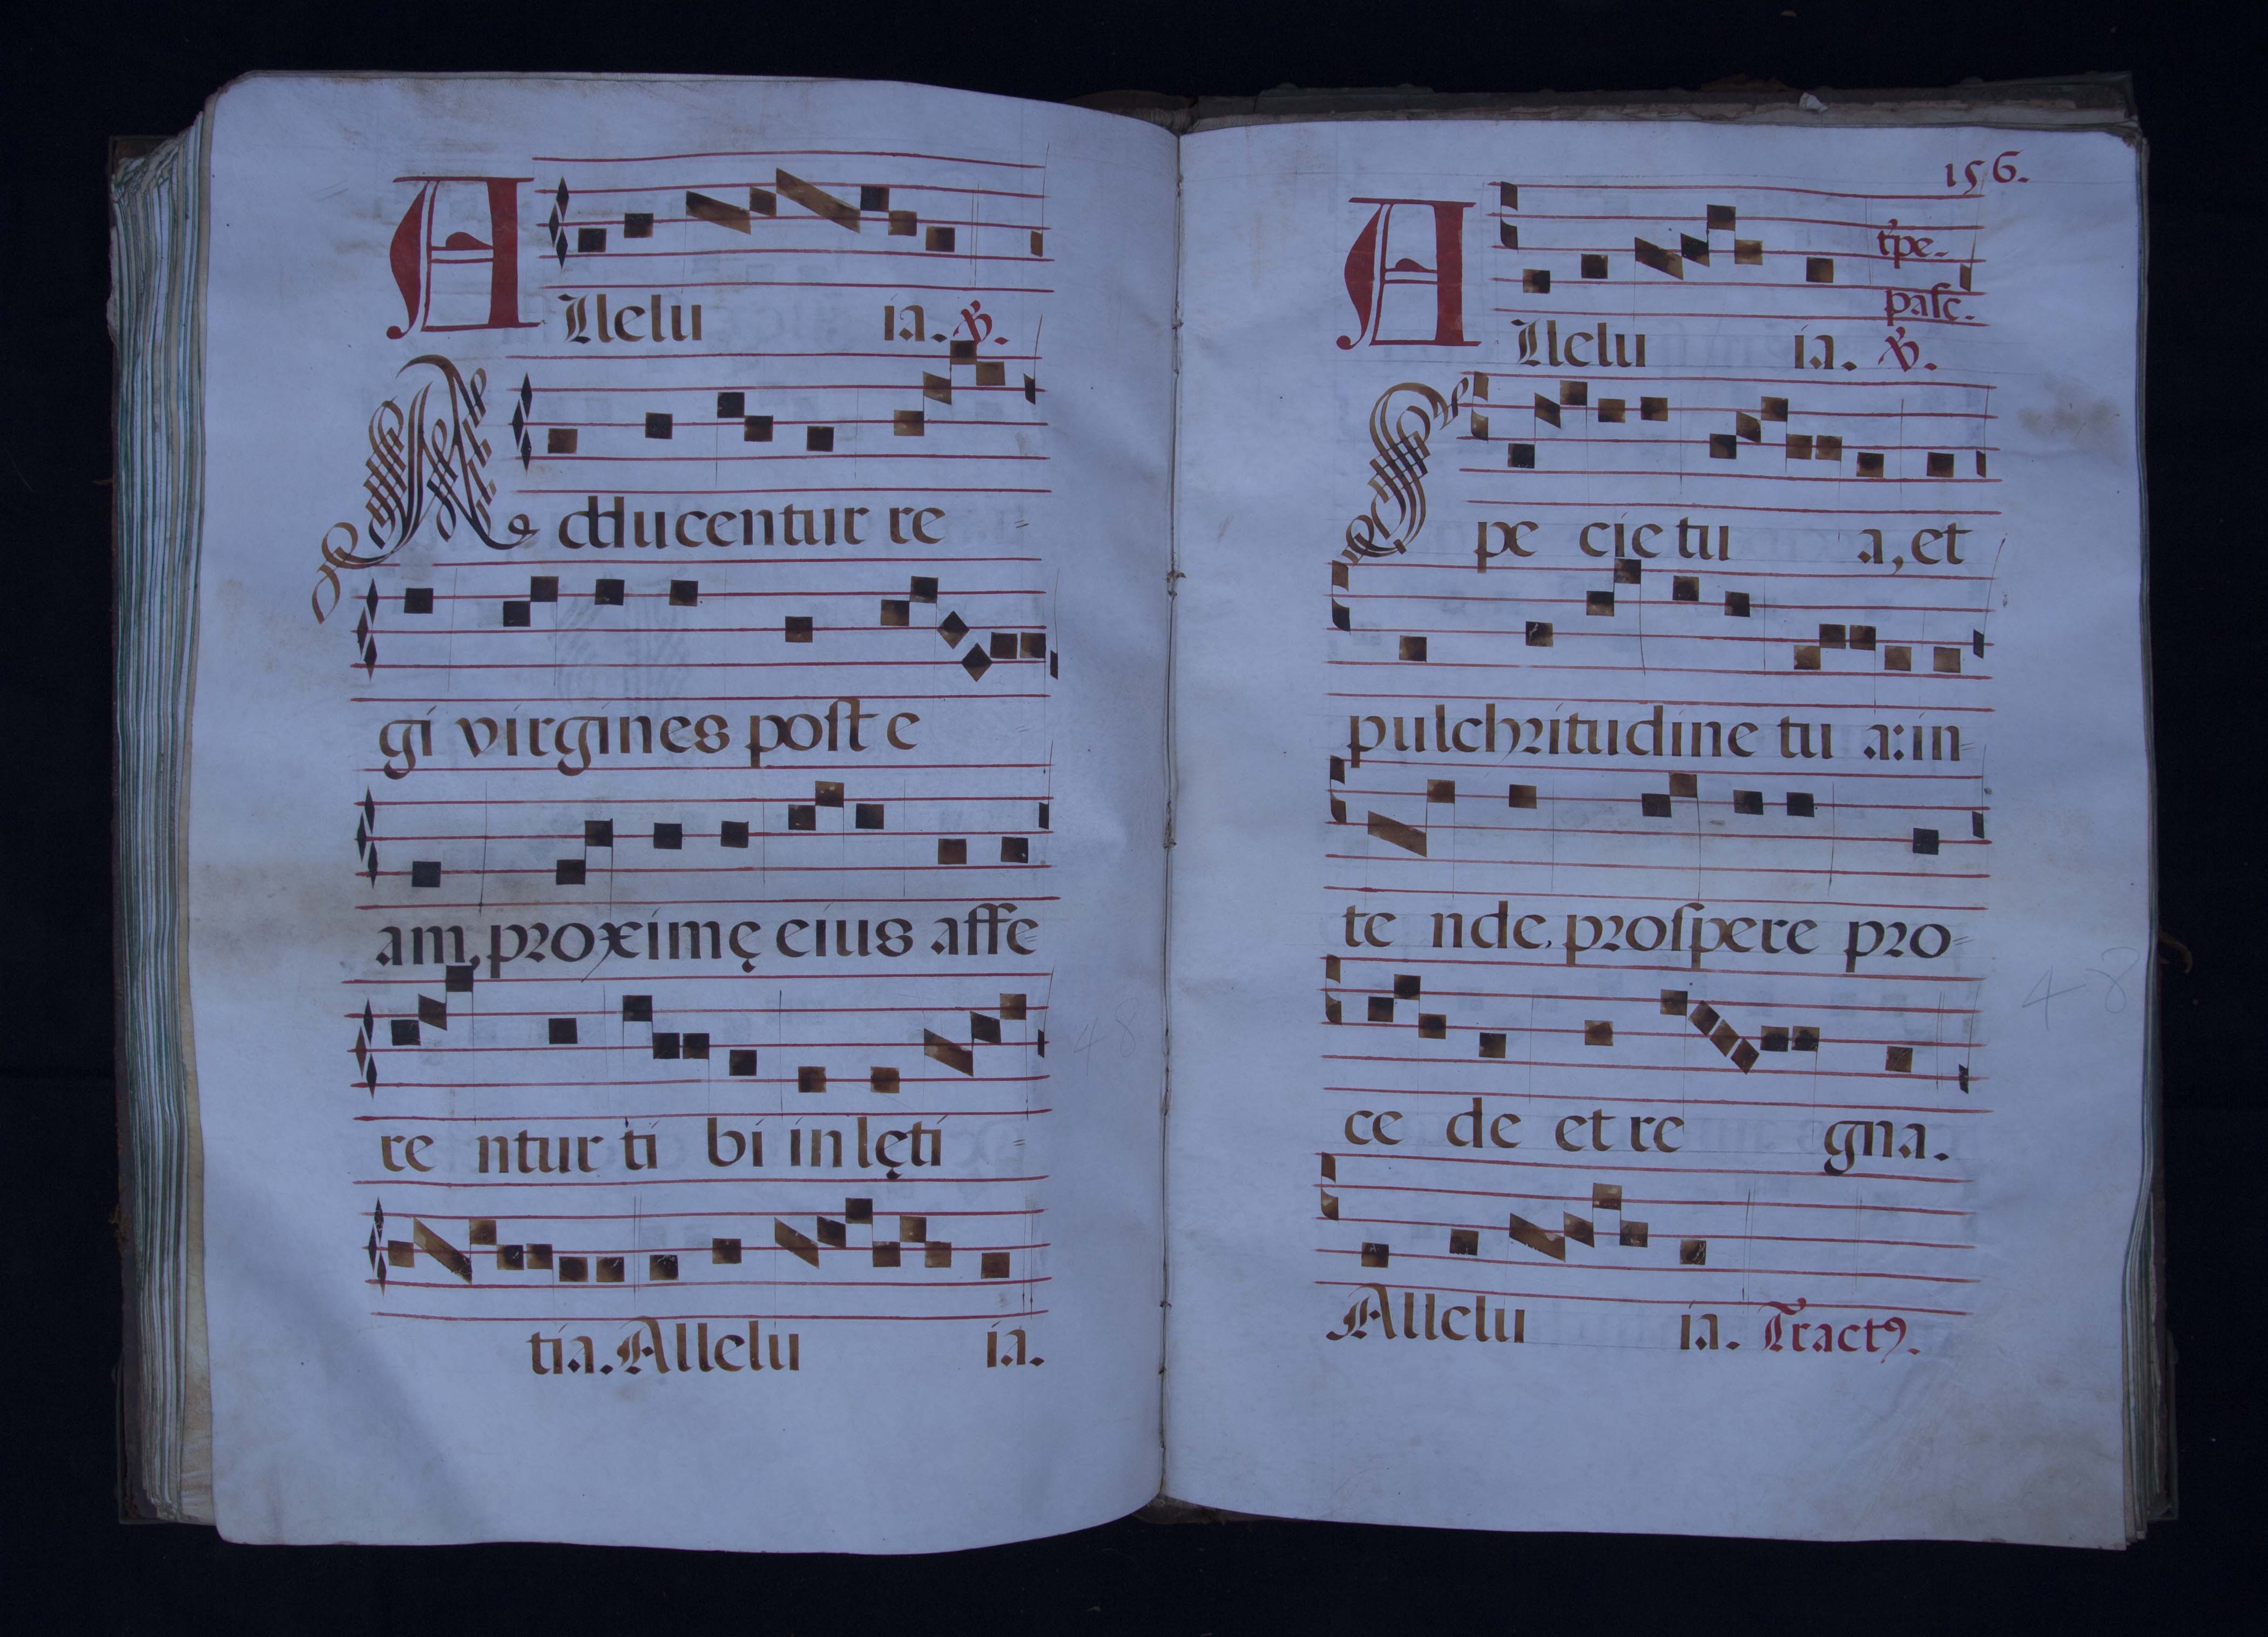 Allelu ia. ℣.
Adducentur re=
gi virgines post e
am, proximę eius affe=
re ntur ti bi in lęti=
tia. Allelu ia.
156.
tp̄e.
pasc.
Allelu ia. ℣.
Spe cie tu a, et
pulchritudine tu a: in=
te nde, prospere pro=
ce de et re gna.
Allelu ia. Tractꝰ.
48
48